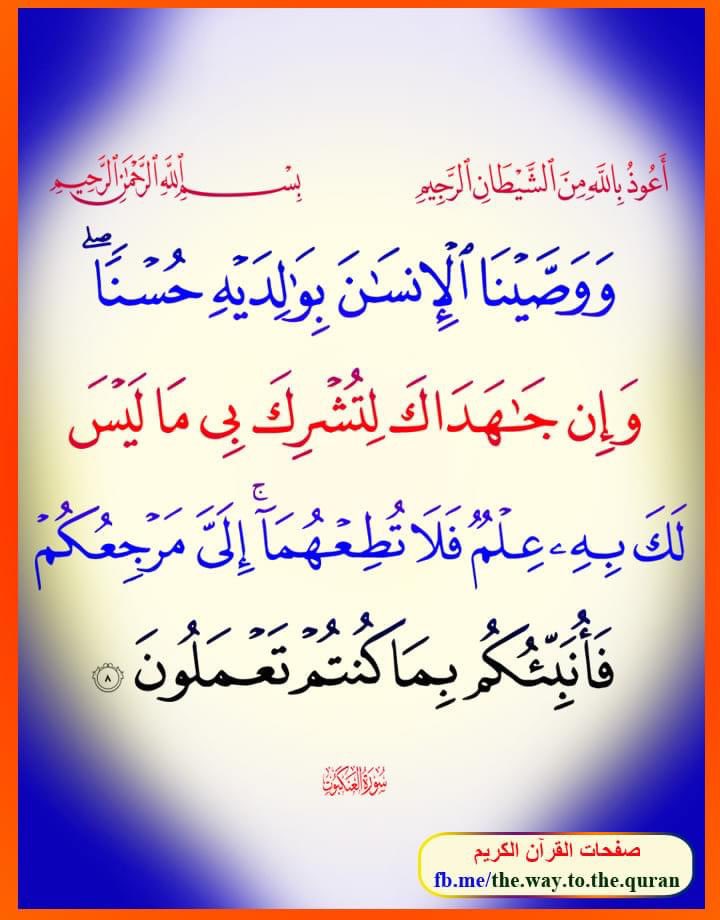 أَعُوذُ بِاللَّهِ مِنَ ٱلشَّيْطَانِ ٱلرَّجِيمِ بِسْمِ ٱللَّهِ ٱلرَّحْمَٰنِ ٱلرَّحِيمِ
وَوَصَّيْنَا ٱلْإِنسَٰنَ بِوَٰلِدَيْهِ حُسْنًاۖ
وَإِن جَٰهَدَاكَ لِتُشْرِكَ بِى مَا لَيْسَ
لَكَ بِهِۦ عِلْمٌ فَلَا تُطِعْهُمَآۚ إِلَىَّ مَرْجِعُكُمْ
فَأُنَبِّئُكُم بِمَا كُنتُمْ تَعْمَلُونَ ٨
سُورَةُ العَنكَبُوتِ
صفحات القرآن الكريم
fb.me/the.way.to.the.quran